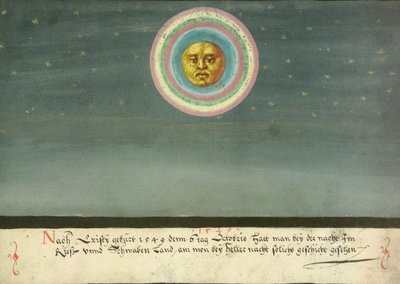 1549
Nach Cristy gepurt 1549 denn 6 tag Octobris Hatt man bey der nacht Im
Riess unnd Schwaben Land, am mon bey heller nacht soliche geschicht gesehen